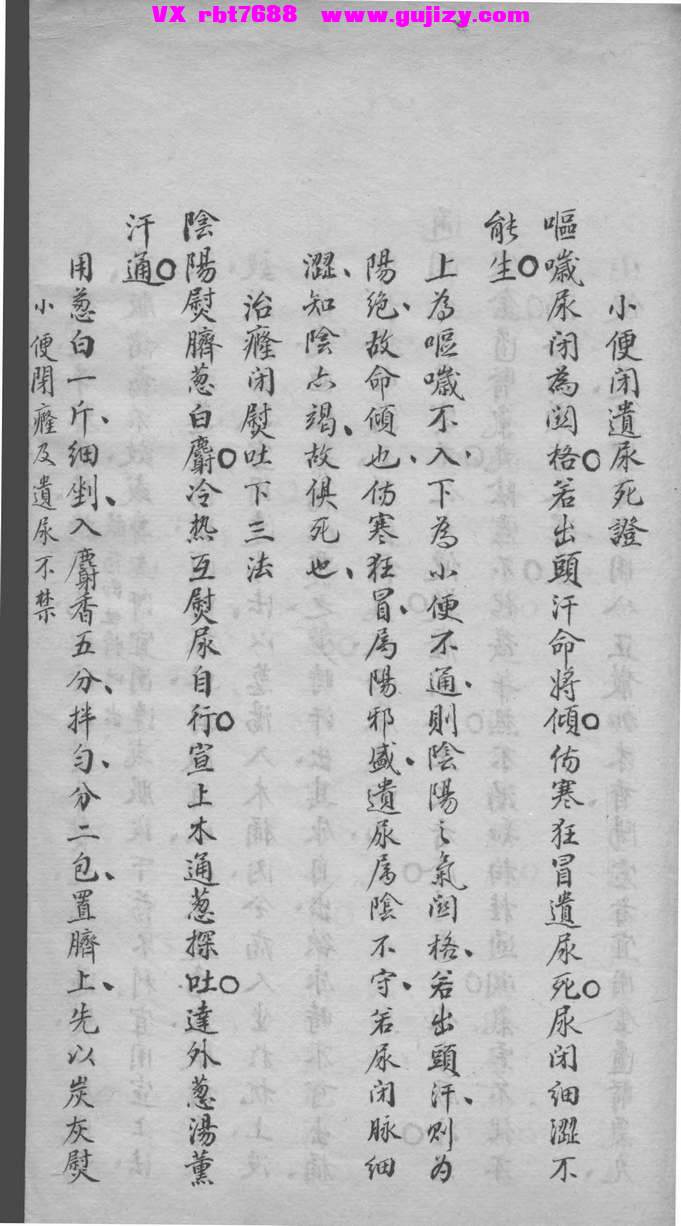 VX rbt7688 www.gujizy.com
小便闭遺尿死證
嘔噦尿闭為関格○若出頭汗命將傾○傷寒狂冒遺尿死○尿闭細澀不
能生○
上為嘔噦不入、下為小便不通、則陰陽之氣関格、若出頭汗、則為
陽绝、故命傾也、傷寒狂冒、属陽邪盛、遺尿属陰不守、若尿闭脉細
澀、知陰亦竭、故俱死也、
治癃闭熨吐下三法
陰陽熨臍葱白麝○冷热互熨尿自行○宣上木通葱探吐○達外葱湯薰
汗通○
用葱白一斤、細剉、入麝香五分、拌匀、分二包、置臍上、先以炭灰熨
小便閉癃及遺尿不禁